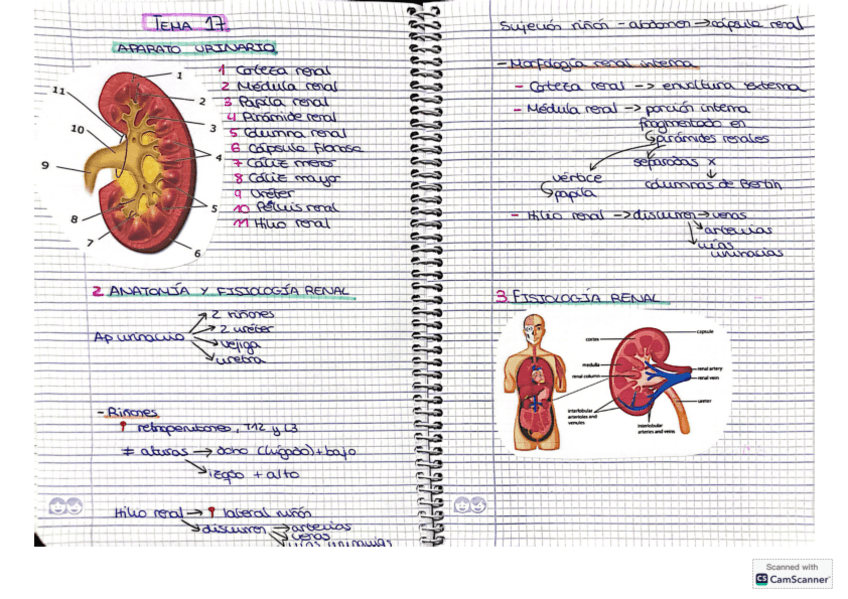 TEMA 17
APARATO URINARIO
1 Corteza renal
2 Médula renal
3 Papila renal
4 Pirámide renal
5 Columna renal
6 Cápsula fibrosa
7 Cáliz menor
8 Cáliz mayor
9 Uréter
10 Pelvis renal
11 Hilio renal
1
2
3
4
5
6
7
8
9
10
11
2. ANATOMÍA Y FISIOLOGÍA RENAL
Ap urinario
2 riñones
2 uréter
vejiga
uretra
- Riñones
retroperitoneo, T12 y L3
≠ alturas → dcho (hígado) + bajo
izqdo + alto
Hilio renal → lateral riñón
discurren → arterias
venas
vías urinarias
Sujeción riñón - abdomen → cápsula renal
- Morfología renal interna
- Corteza renal → envoltura externa
- Médula renal → porción interna
fragmentado en
pirámides renales
separadas x
vértice
papila
columnas de Bertin
- Hilio renal → discurren → venas
arterias
vías
urinarias
3. FISIOLOGÍA RENAL
capsule
cortex
medulla
renal column
renal artery
renal vein
ureter
interlobular
arterioles and
venules
interlobar
arteries and veins
Scanned with
CS CamScanner